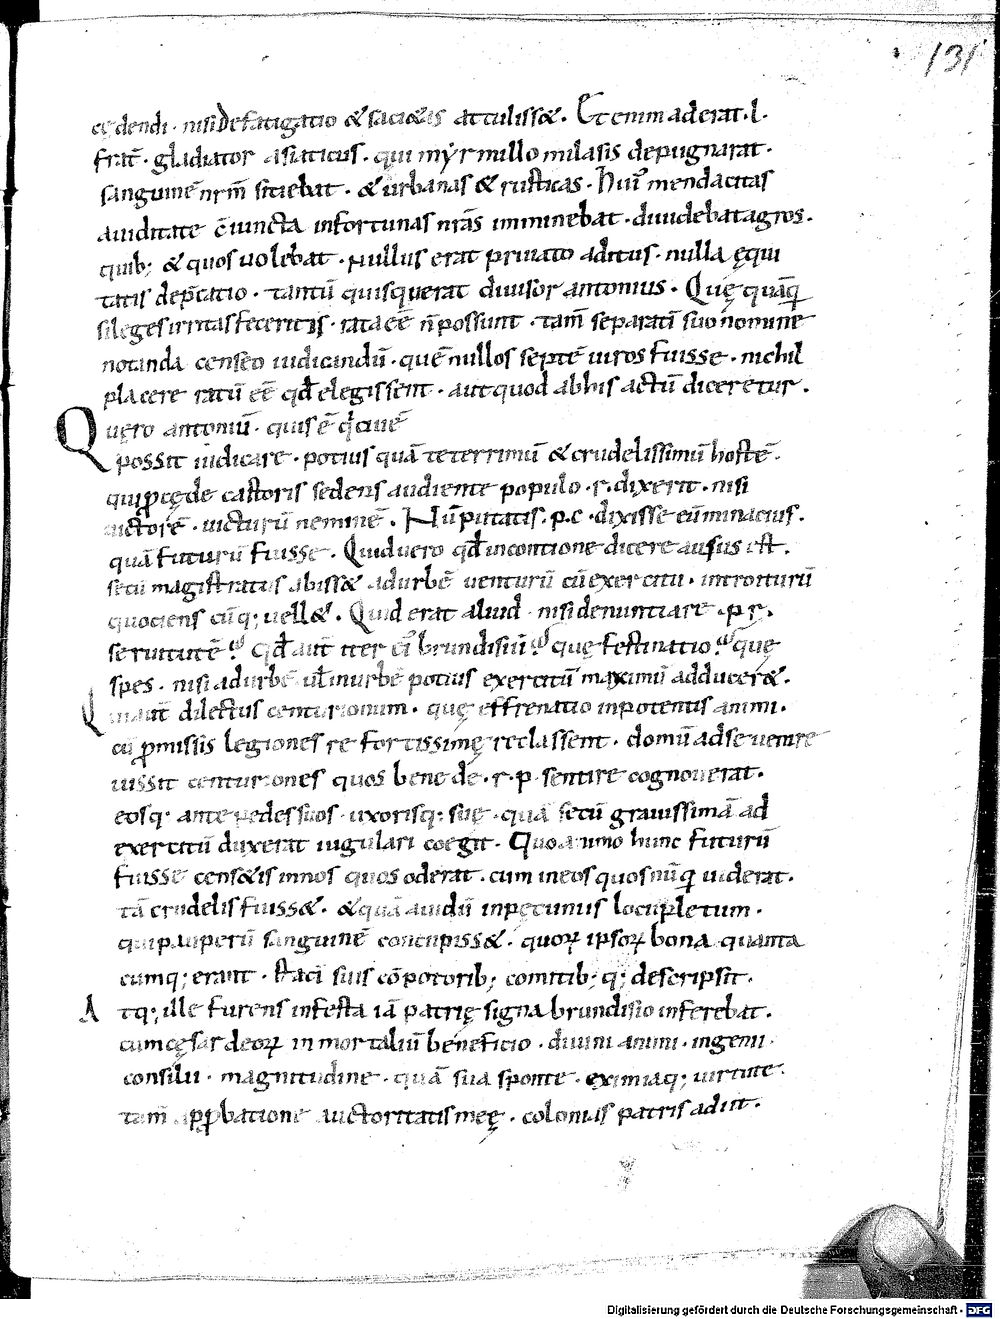 131
cędendi · nisi defatigatio & saci&as attuliss&. Et enim aderat · l ·
frat̄ · gladiator asiaticus · qui myrmillo milasis depugnarat ·
sanguinē nr̄m sitiebat · & urbanas & rusticas · hui᾽ mendacitas
auiditate c̄iuncta infortunas nr̄as imminebat · diuidebat agros ·
quib; & quos uolebat · Nullus erat priuato aditus · nulla ęqui
tatis dep̄catio · tantū quisq; erat diuisor antonius · Quę quāq̄
si leges irritas feceritis · rata eē n̄ possunt · tam̄ separatī suo nomine
notanda censeo iudicandū · quē nullos septē uiros fuisse · nichil
placere ratū eē qd̄ elegissent · aut quod ab his actū diceretur ·
Quęro antoniū · quis ē q̄ ciuē
possit iudicare · potius quā teterrimū & crudelissimū hostē ·
qui ꝓ cęde castoris sedens audiente populo · r · dixerit · nisi
uictorē · uicturū neminē · Nū putatis · p · c · dixisse eū minacius ·
quā futurū fuisse · Quid uero qd̄ in contione dicere ausus est ·
secū magistratus abiss& ad urbē uenturū cū exercitu · introiturū
quociens cūq; uell& · Quid erat aliud nisi denuntiare · p · r ·
seruitutē? Qd̄ aut̄ iter ei᾽ brundisiū? quę festinatio? quę
spes · nisi ad urbē ul̄ in urbē potius exercitū maximū adducer& ·
Qui aut̄ dilectus centurionum · quę effrenatio inpotentis animi ·
cū ꝓmissis legiones re fortissimę reclassent · domū ad se uenire
iussit centuriones quos bene de · r · p · sentire cognouerat ·
eosq; ante pedes suos · uxorisq; suę · quā secū grauissimā ad
exercitū duxerat iugulari coegit · Quo animo hunc futurū
fuisse cens&is in nos quos oderat · cum in eos quos nūq̄ uiderat ·
tā crudelis fuiss& · & quā auidū in pecuniis locupletum ·
qui pauperū sanguinē concupiss& · quoꝝ ipsoꝝ bona quanta
cumq; erant · staci suis cōpotorib; comitib; q; descripsit ·
Atq; ille furens infesta iā patrię signa brundisio inferebat ·
cum cęsar deoꝝ inmortaliū beneficio · diuini animi · ingenii
consilii · magnitudine · quā sua sponte · eximiaq; uirtute ·
tam̄ apꝓbatione auctoritatis meę · colonias patris adiit ·
Digitalisierung gefördert durch die Deutsche Forschungsgemeinschaft - DFG